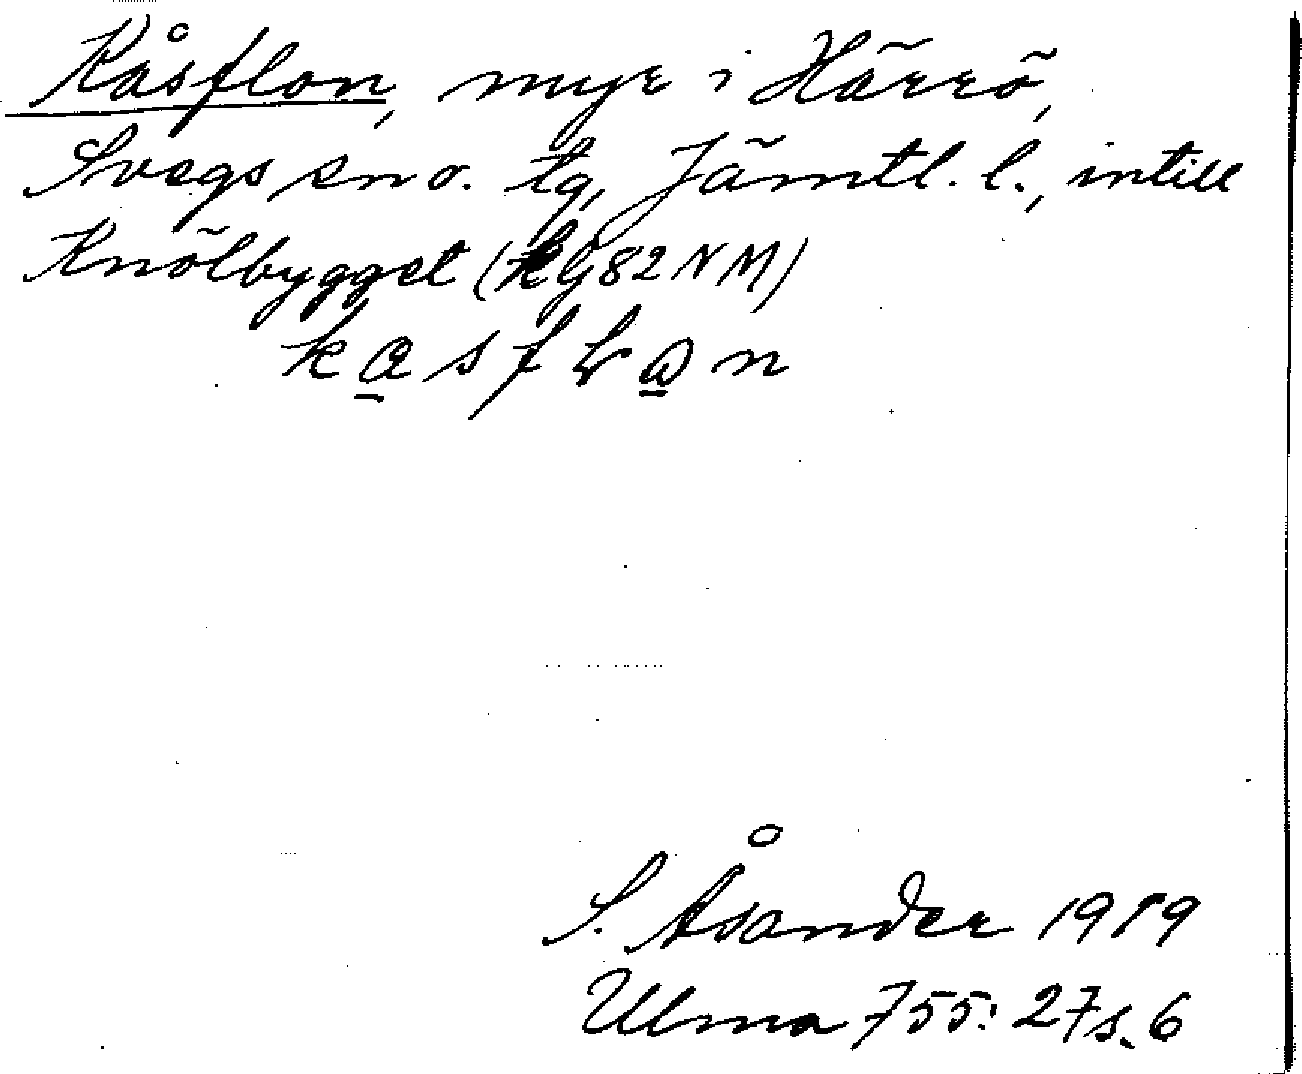 Kåsflon, myr i Härrö,
Svegs sn o. tg, Jämtl. l., intill
Knölbygget (kG82NM)
S. Åsander 1919
Ulma 755: 27 s. 6